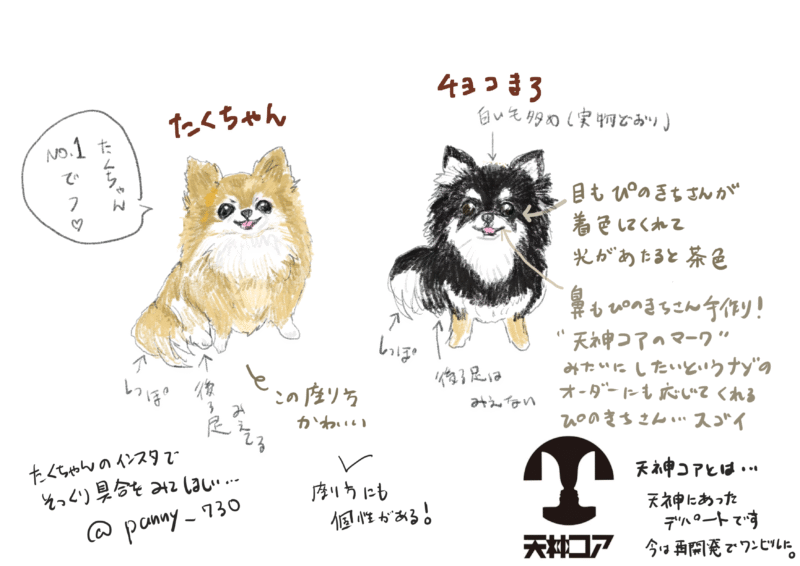 たくちゃん
チョコまろ
白い毛多め(実物どおり)
たくちゃん
NO.1
でフ♡
目もぴのきちさんが
着色してくれて
光があたると茶色
鼻もぴのきちさん手作り!
"天神コアのマーク"
みたいにしたいというナゾの
オーダーにも応じてくれる
ぴのきちさん…スゴイ
しっぽ
後ろ足
みえてる
この座り方
かわいい
しっぽ
後ろ足は
みえない
たくちゃんのインスタで
そっくり具合をみてほしい…
@panny_730
座り方にも
個性がある!
天神コア
天神コアとは…
天神にあった
デパートです
今は再開発でワンビルに。